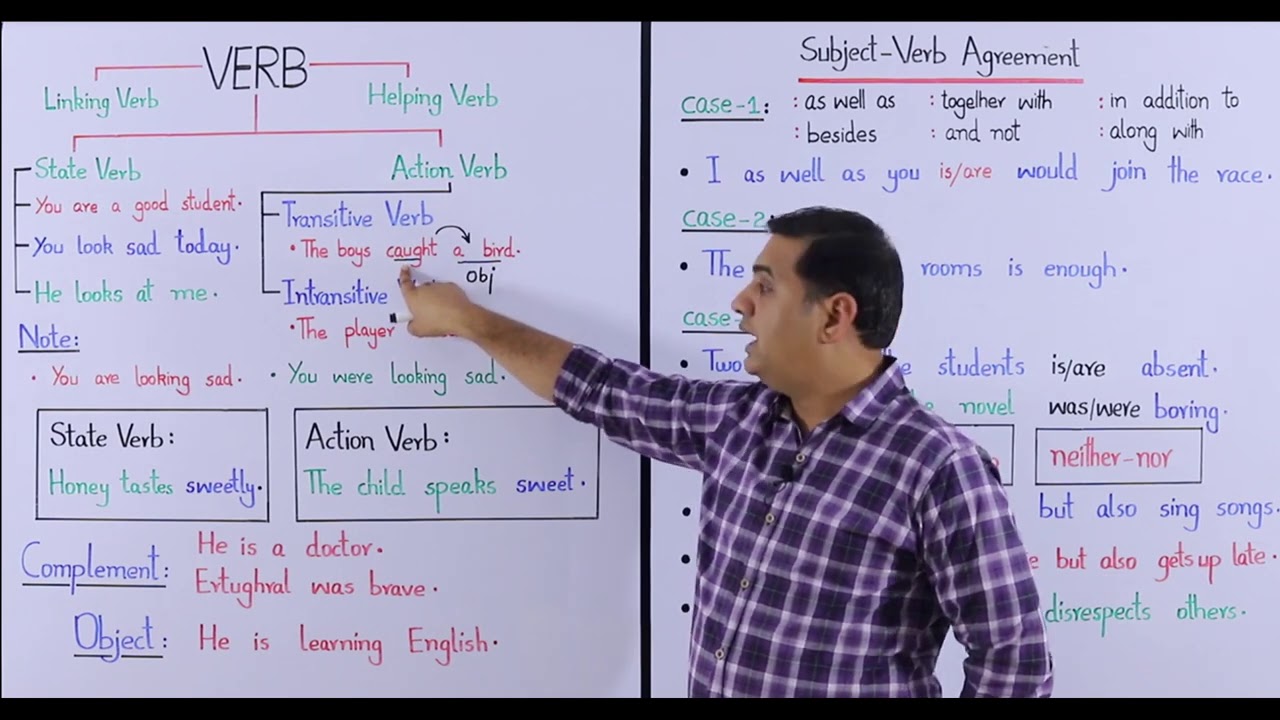 VERB
Linking Verb
Helping Verb
State Verb
Action Verb
You are a good student.
You look sad today.
He looks at me.
Transitive Verb
• The boys caught a bird.
obj
Intransitive
• The player
Note:
• You are looking sad.
• You were looking sad.
State Verb:
Honey tastes sweetly.
Action Verb:
The child speaks sweet.
Complement:
He is a doctor.
Ertughral was brave.
Object: He is learning English.
Subject-Verb Agreement
Case-1: : as well as : together with : in addition to
: besides : and not : along with
• I as well as you is/are would join the race.
Case-2:
• The rooms is enough.
Case-
• Two students is/are absent.
the novel was/were boring.
neither-nor
• but also sing songs.
• but also gets up late.
• disrespects others.